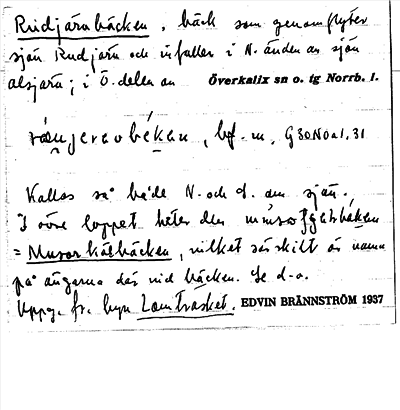 Rudjärnbäcken, bäck som genomflyter
sjön Rudjärn och infaller i N. änden av sjön
alsjärn; i Ö. delen av Överkalix sn o. tg Norrb. l.
bf. m, G30N0a1,31
Kallas så både N. och S. om sjön.
I övre loppet heter den
= Musorkälbäcken, vilket särskilt är namn
på ängarna där vid bäcken. Se d.o.
Uppg. fr. byn Lomträsket. EDVIN BRÄNNSTRÖM 1937